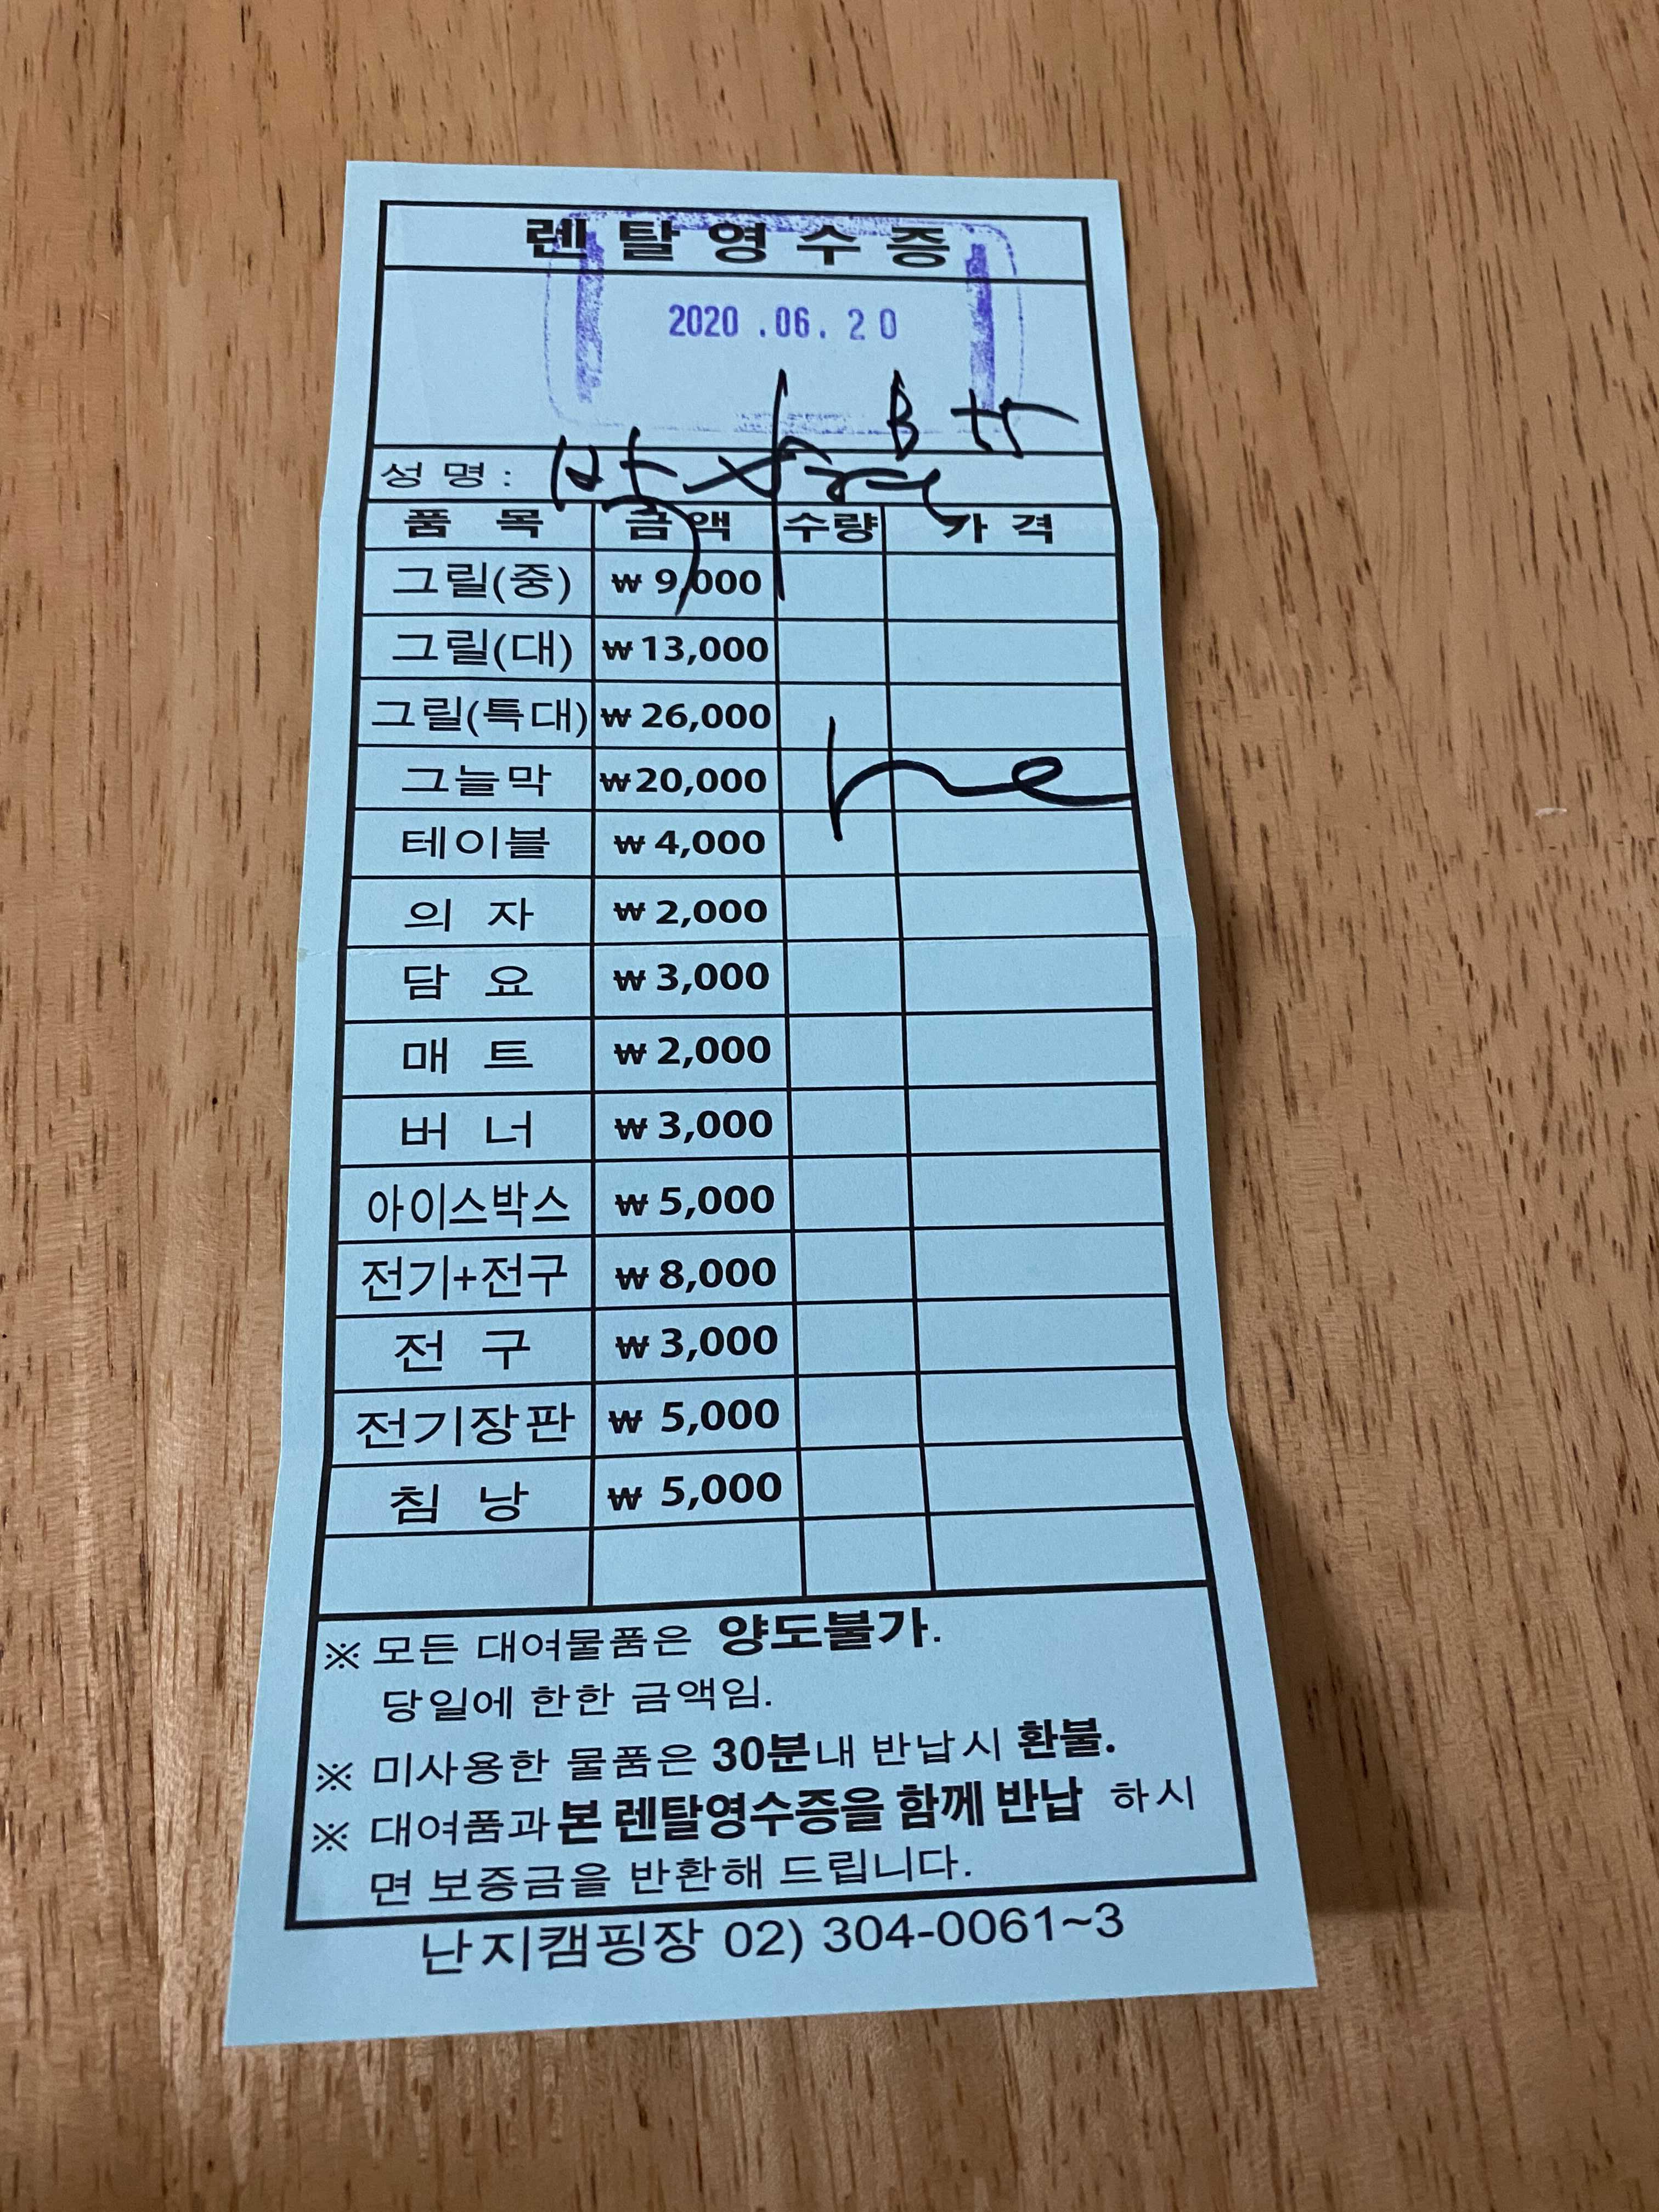 렌탈영수증
2020.06.20
성명:
품 목 금액 수량 가격
그릴(중) ₩ 9,000
그릴(대) ₩13,000
그릴(특대) ₩ 26,000
그늘막 ₩20,000
테이블 ₩ 4,000
의 자 ₩ 2,000
담 요 ₩ 3,000
매 트 ₩ 2,000
버 너 ₩ 3,000
아이스박스 ₩ 5,000
전기+전구 ₩ 8,000
전 구 ₩ 3,000
전기장판 ₩ 5,000
침 낭 ₩ 5,000
※ 모든 대여물품은 양도불가.
당일에 한한 금액임.
※ 미사용한 물품은 30분내 반납시 환불.
※ 대여품과 본 렌탈영수증을 함께 반납 하시
면 보증금을 반환해 드립니다.
난지캠핑장 02) 304-0061~3